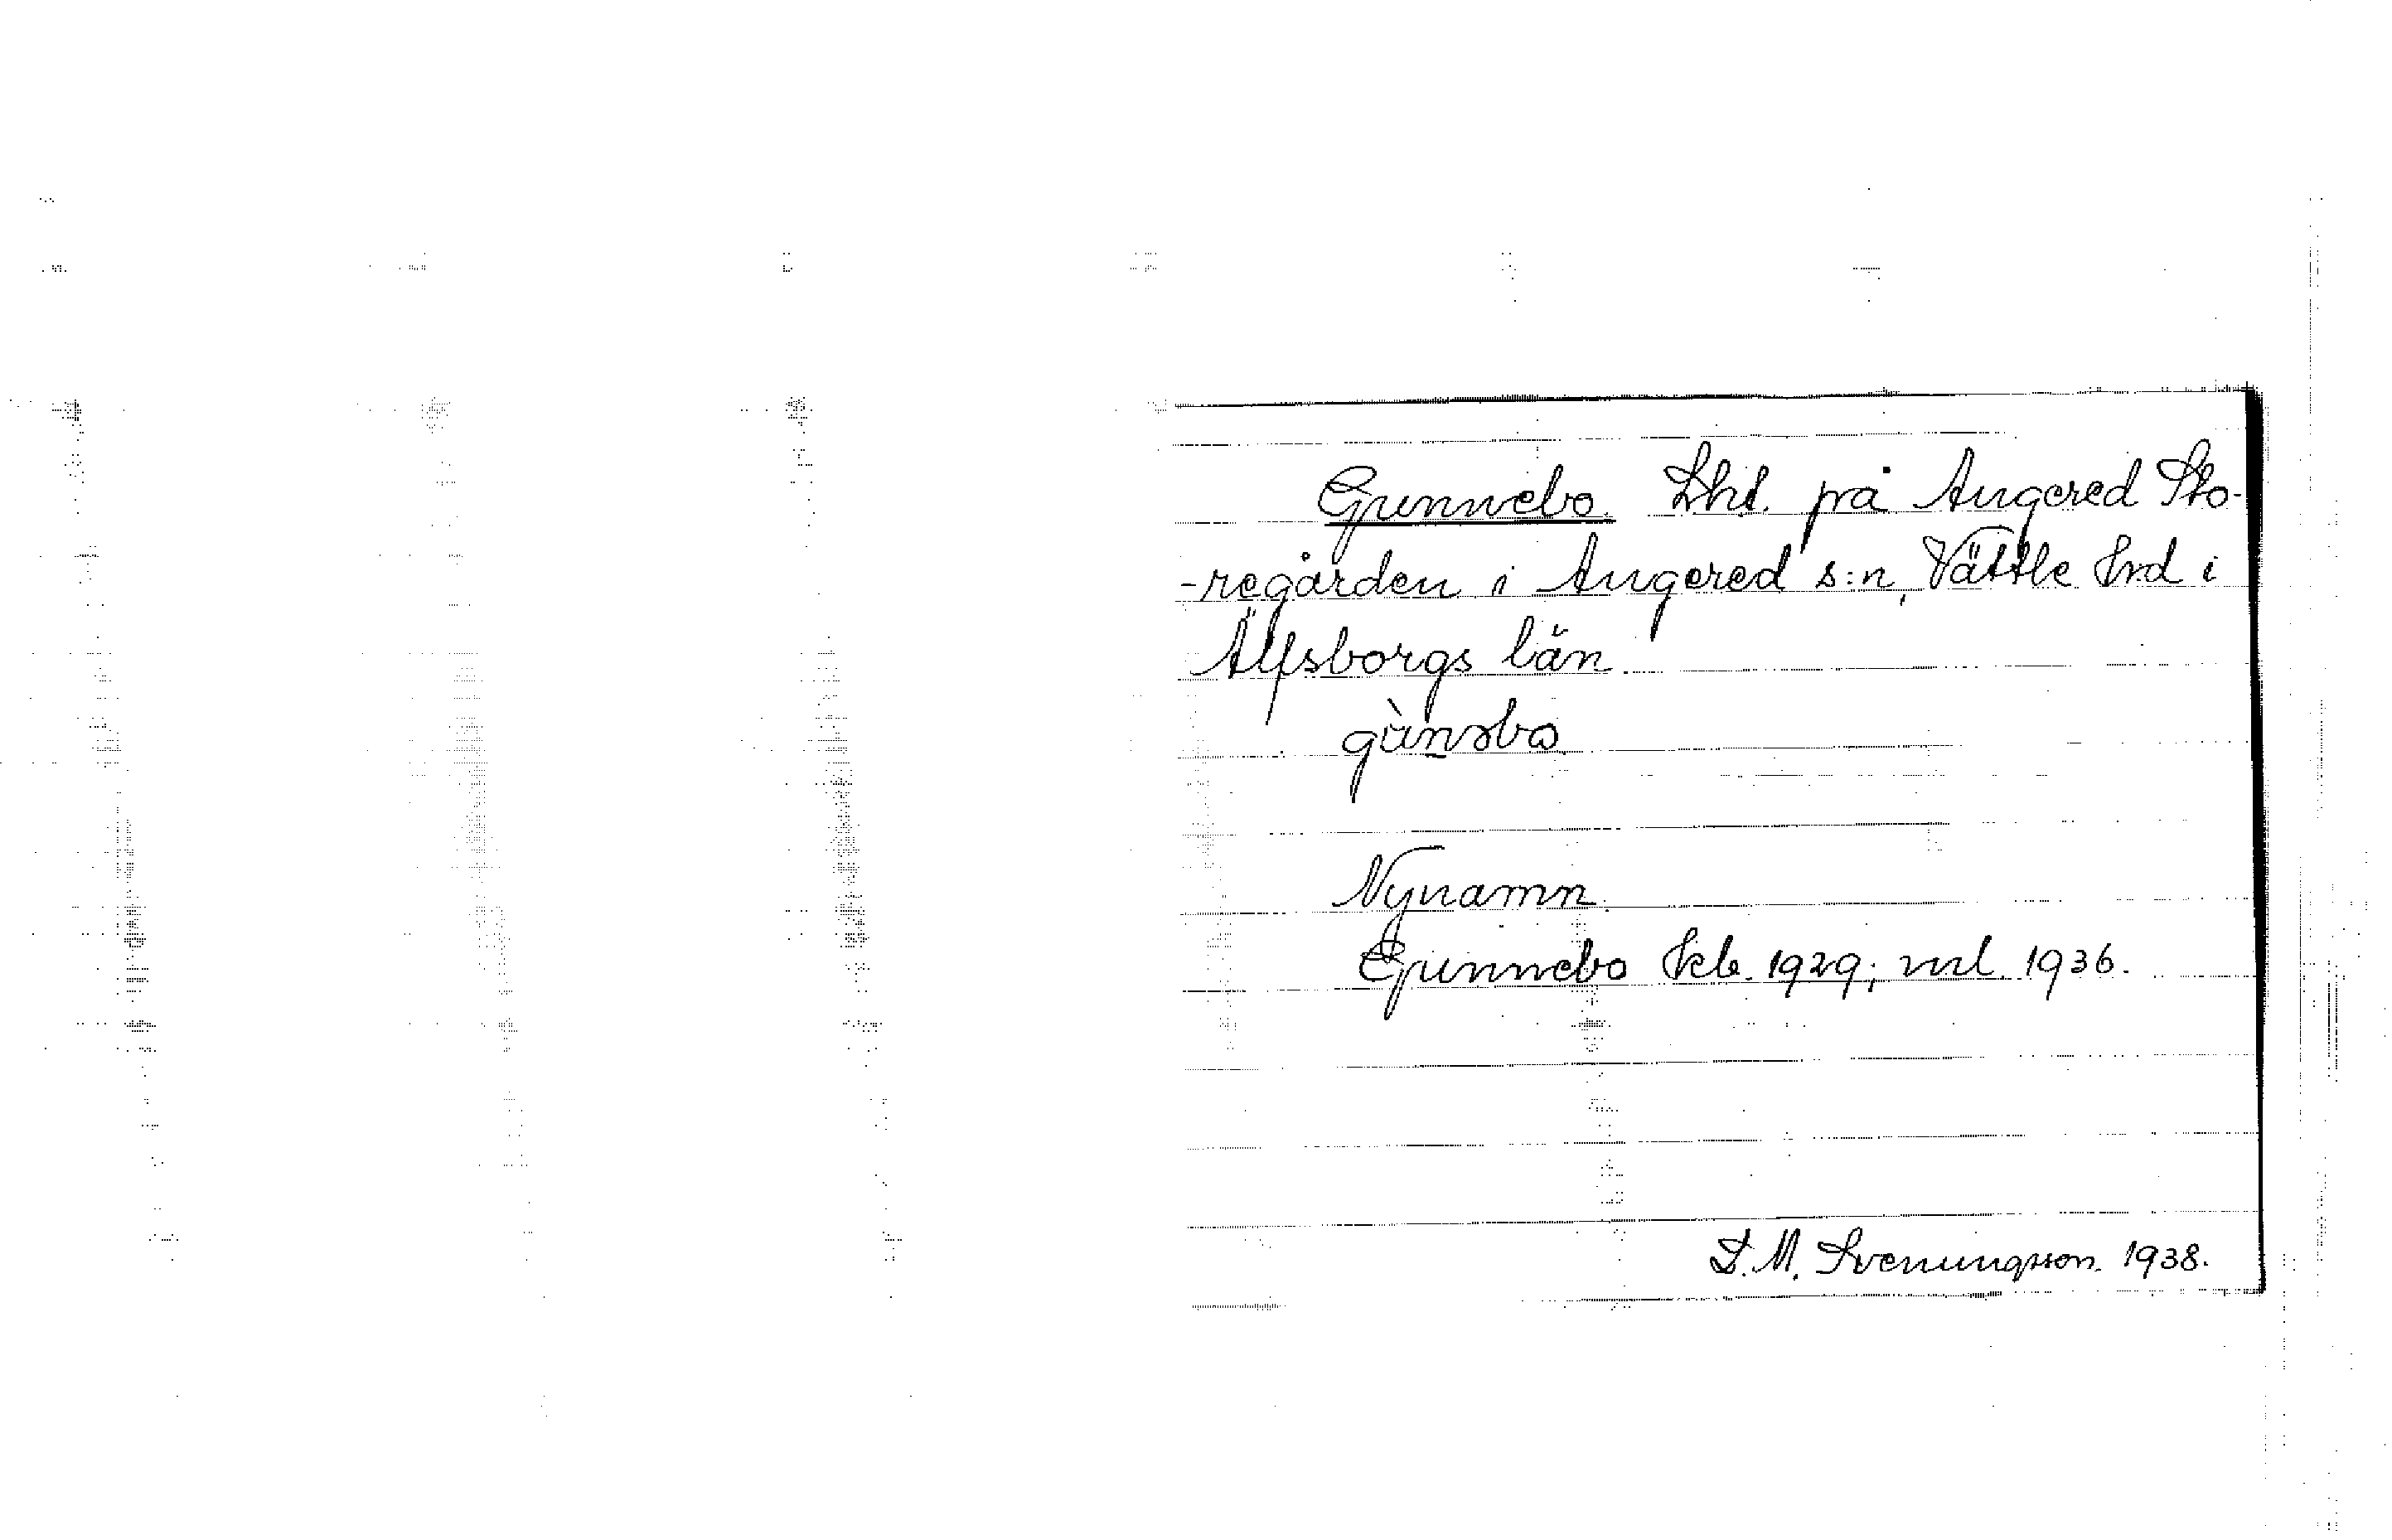 Gunnebo. Lht. på Angered Sto-
-regården i Angered s:n, Vättle hrd i
Älfsborgs län
gùnəbo
Nynamn.
Gunnebo kb. 1929; ml. 1936.
S. M. Svenungsson. 1938.